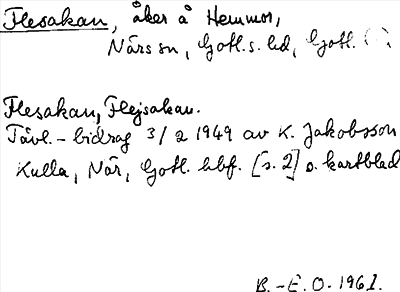 Flesakan, åker å Hemmor,
När sn, Gotl. s. hd, Gotl. l.
Flesakan, Flejsakan.
Tävl.-bidrag 3/2 1949 av K. Jakobsson
Kulla, När, Gotl. hbf. [s. 2] o. kartblad
B.-E. O. 1961.